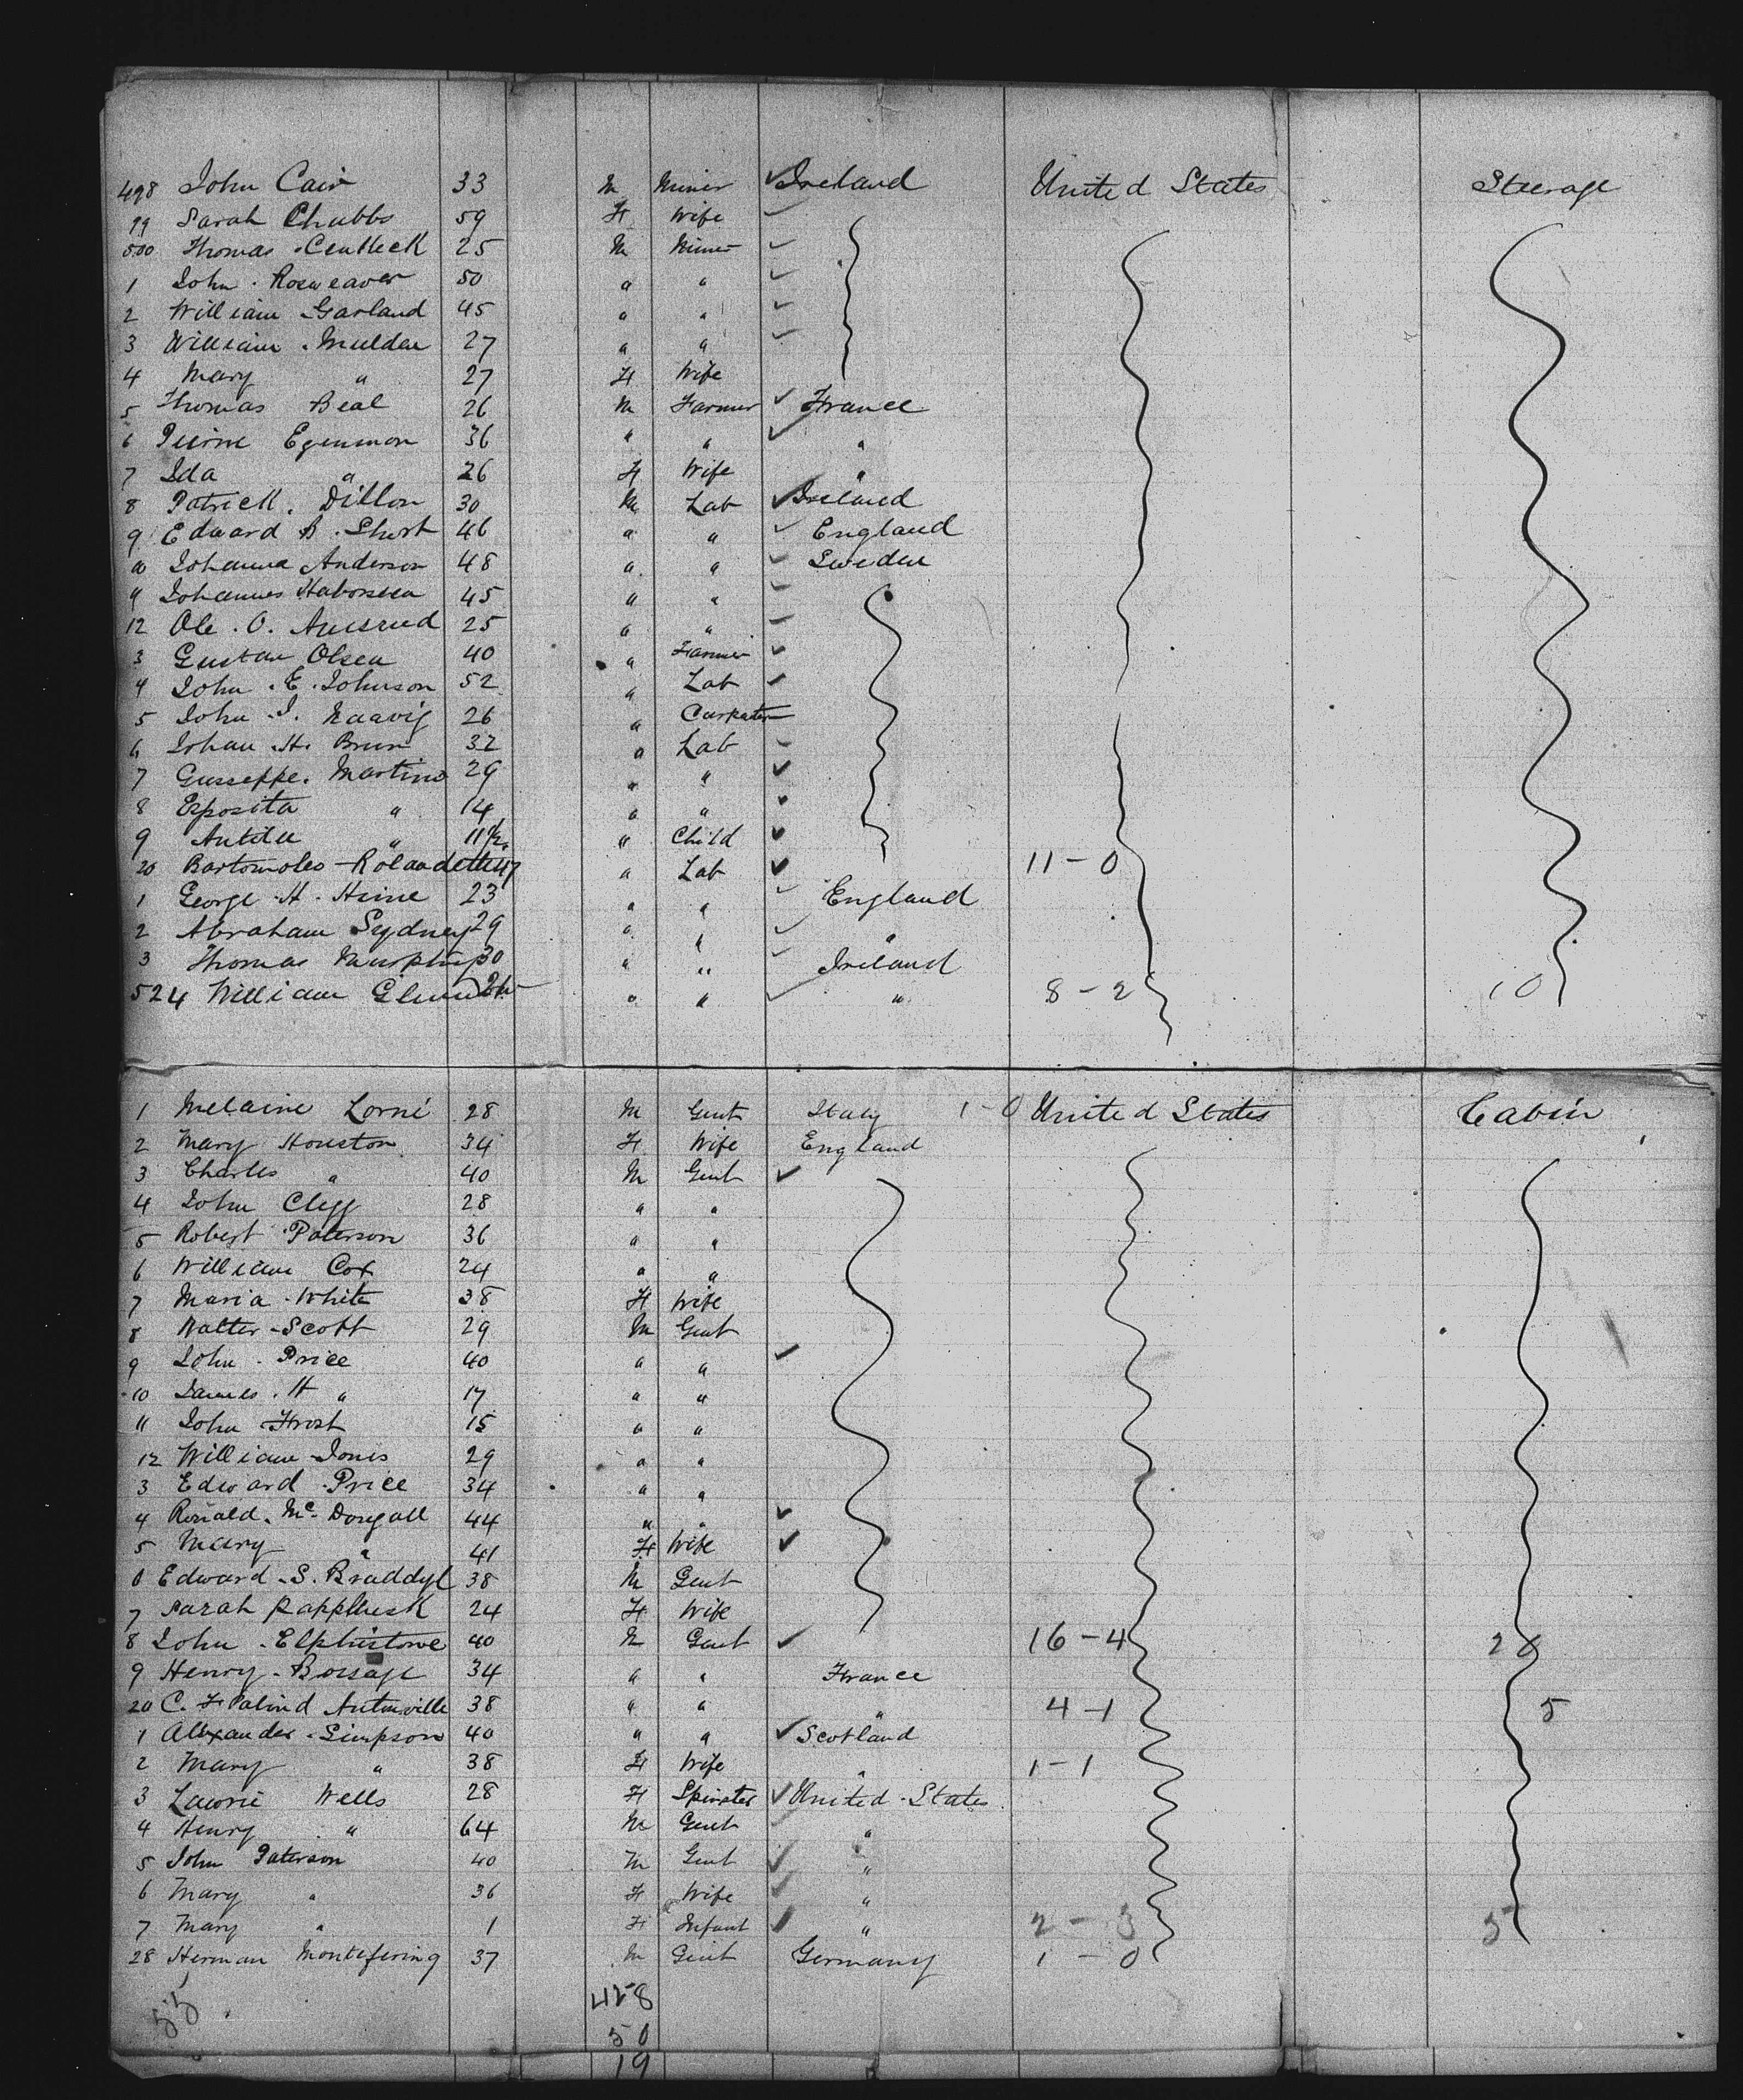 498 John Cain 33 M Miner Ireland United States Steerage
99 Sarah Chubbs 59 F Wife
500 Thomas 25 M Miner
1 John Roseweaver 50 " "
2 William Garland 45 " "
3 William Mulden 27 " "
4 Mary " 27 F Wife
5 Thomas Beal 26 M Farmer France
6 Pierre Egenmon 36 " " "
7 Ida " 26 F Wife "
8 Patrick Dillon 30 M Lab Ireland
9 Edward B. Short 46 " " England
10 Johanna Anderson 48 " " Sweden
11 Johannes 45 " "
12 Ole O. 25 " "
3 Gustav Olsen 40 " Farmer
4 John E. Johnson 52 " Lab
5 John J. Naavig 26 " Carpater
6 Johan H. Brun 32 " Lab
7 Guseppe Martino 29 " "
8 Esposita " 14 " "
9 " 11 " Child
20 Bartomoles Rolandetti 47 " Lab 11-0
1 George H. Heine 23 " " England
2 Abraham Sydney 29 " " "
3 Thomas Murphy 30 " " Ireland
524 William " " " 8-2 10
1 Melaine Lorné 28 M Gent Italy 1-0 United States Cabin
2 Mary Houston 34 F Wife England
3 Charles " 40 M Gent
4 John Clegg 28 " "
5 Robert Paterson 36 " "
6 William Cox 24 " "
7 Maria White 38 F Wife
8 Walter Scott 29 M Gent
9 John Price 40 " "
10 James H " 17 " "
11 John Frost 15 " "
12 William Jones 29 " "
3 Edward Price 34 " "
4 Ronald McDougall 44 " "
5 Mary " 41 F Wife
6 Edward S. Braddyl 38 M Gent
7 Sarah 24 F Wife
8 John Elphistowe 40 M Gent 16-4 20
9 Henry Bossage 34 " " France
20 C. F 38 " " " 4-1 5
1 Alexander Simpson 40 " " Scotland
2 Mary " 38 F Wife " 1-1
3 Lawrie Wells 28 F Spinster United States
4 Henry " 64 M Gent "
5 John Paterson 40 M Gent "
6 Mary " 36 F Wife "
7 Mary " 1 F Infant " 2-3 5
28 Herman Montefering 37 M Gent Germany 1-0
458
50
19